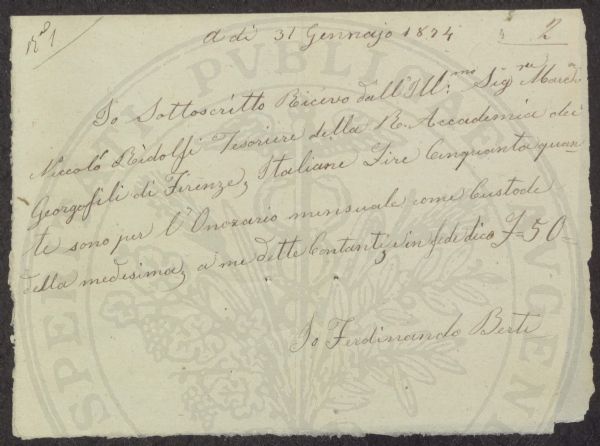 N.º 1
a dì 31 Gennajo 1874
2
Io Sottoscritto Ricevo dall'Ill.mo Sig.re March.
Niccolò Ridolfi Tesoriere della R. Accademia dei
Georgofili di Firenze, Italiane Lire Cinquanta quan
te sono per l'Onorario mensuale come Custode
della medesima, a me dette Contanti, e in fede dico £ 50=
Io Ferdinando Berti